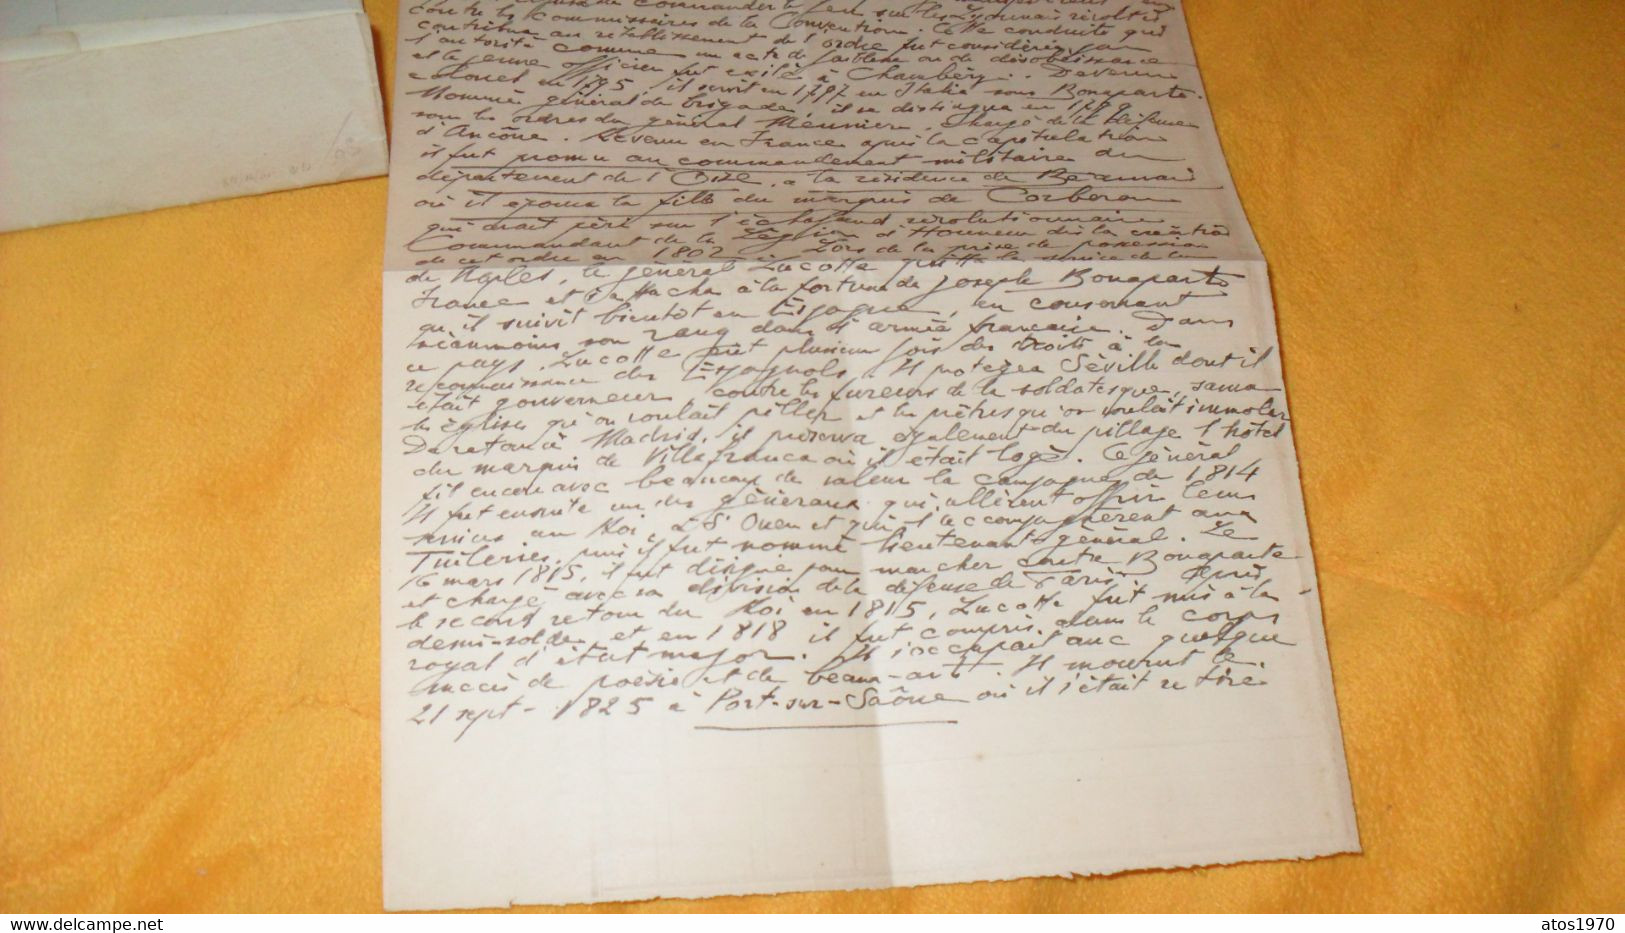 commander le feu sur les Lyonnais révoltés
contre les commissaires de la Convention. Cette conduite qui
contribua au rétablissement de l'ordre fut considérée par
l'autorité comme un acte de faiblesse ou de désobéissance
et le jeune officier fut exilé à Chambéry. Devenu
colonel en 1795, il servit en 1797 en Italie sous Bonaparte.
Nommé général de brigade, il se distingua en 1799
sous les ordres du général Meunier. Chargé de la défense
d'Ancône. Revenu en France après la capitulation
il fut promu au commandement militaire du
département de l'Oise, à la résidence de Beauvais
où il épousa la fille du marquis de Corberon
qui avait péri sur l'échafaud révolutionnaire
Commandant de la Légion d'Honneur dès la création
de cet ordre en 1802. Lors de la prise de possession
de Naples, le général Lucotte quitta le service de la
France et s'attacha à la fortune de Joseph Bonaparte
qu'il suivit bientôt en Espagne, en conservant
néanmoins son rang dans l'armée française. Dans
ce pays, Lucotte eût plusieurs fois des droits à la
reconnaissance des Espagnols. Il protégea Séville dont il
était gouverneur contre les fureurs de la soldatesque, sauva
les églises qu'on voulait piller et les prêtres qu'on voulait immoler
De retour à Madrid, il préserva également du pillage l'hôtel
du marquis de Villafranca où il était logé. Ce général
fit encore avec beaucoup de valeur la campagne de 1814
Il fut ensuite un des généraux qui allèrent offrir leurs
services au Roi, à St Ouen et qui l'accompagnèrent aux
Tuileries, puis il fut nommé lieutenant-général. Le
16 mars 1815, il fut désigné pour marcher contre Bonaparte
et chargé avec sa division de la défense de Paris. Après
le second retour du Roi en 1815, Lucotte fut mis à la
demi-solde, et en 1818 il fut compris dans le corps
royal d'état major. Il s'occupait avec quelque
succès de poésie et de beaux-arts. Il mourut le
21 sept- 1825 à Port-sur-Saône où il s'était retiré
atos1970